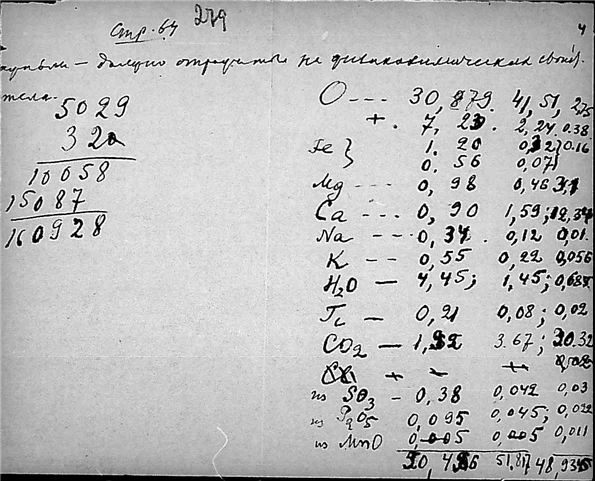 Стр. 64 279
4
— должно отразиться на физикохимическом
тела.
5029
32
10058
15087
160928
O --- 30,879. 41,51, 275
+. 7, 23. 2,24 0.38
Fe } 1. 20 0,32 } 0.16
0. 56 0,07
Mg --- 0, 98 0,46
Ca --- 0, 90 1,59; 12,34
Na --- 0, 34. 0,12 0,01.
K -- 0,55 0,22 0,056
H2O — 4,45; 1,45; 0,687
Ti — 0,21 0,08; 0,02
CO2 — 3.67; 30.32
+ 
из SO3 - 0,38 0,042 0,03
из P2O5 0,095 0,045; 0,022
из MnO 0,005 0,005 0,011
51,87 48,9345